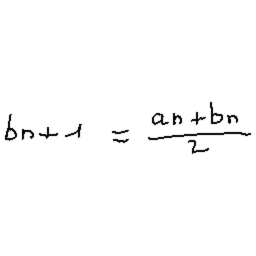 bn+1 = an+bn/2